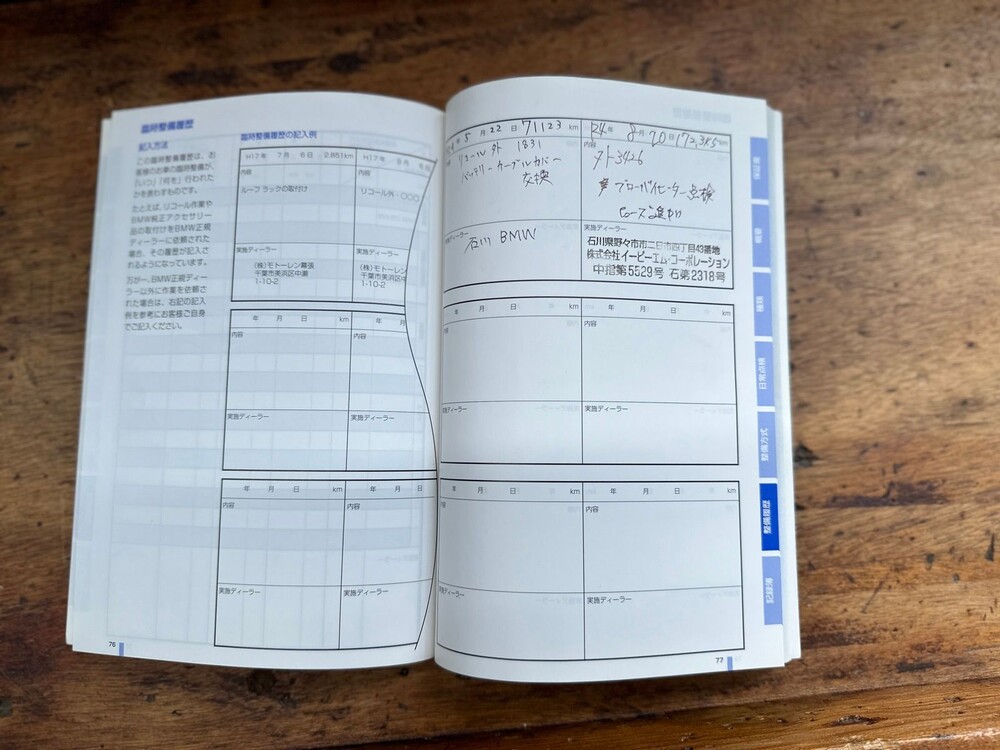 臨時整備履歴
記入方法
この臨時整備履歴は、お
客様のお車の臨時整備が、
「いつ」「何を」行われた
かを表わすものです。
たとえば、リコール作業や
BMW純正アクセサリー
品の取付けをBMW正規
ディーラーに依頼された
場合、その履歴が記入さ
れるようになっています。
万が一、BMW正規ディー
ラー以外に作業を依頼さ
れた場合は、右記の記入
例を参考にお客様ご自身
でご記入ください。
臨時整備履歴の記入例
H17年 7月 6日 2,851km
内容
ルーフ ラックの取付け
実施ディーラー
(株)モトーレン幕張
千葉市美浜区中瀬
1-10-2
H17年 8月
内容
リコール外-○○○
実施ディーラー
(株)モトーレン
千葉市美浜区中
1-10-2
年 月 日 km
内容
実施ディーラー
年 月
内容
実施ディーラー
年 月 日 km
内容
実施ディーラー
年 月 日
内容
実施ディーラー
76
5月22日 71123 km
リコール外 1831
バッテリーケーブルカバー
交換
実施ディーラー
石川 BMW
24年 8月20日 km
内容
外3426
ブローバイヒーター点検
実施ディーラー
石川県野々市市二日市四丁目43番地
株式会社イーピーエム・コーポレーション
中指第5529号 石第2318号
年 月 日 km
内容
実施ディーラー
年 月 日 km
内容
実施ディーラー
年 月 日 km
内容
実施ディーラー
年 月 日 km
内容
実施ディーラー
77
保証書
概要
種類
日常点検
整備方式
整備履歴
記録簿